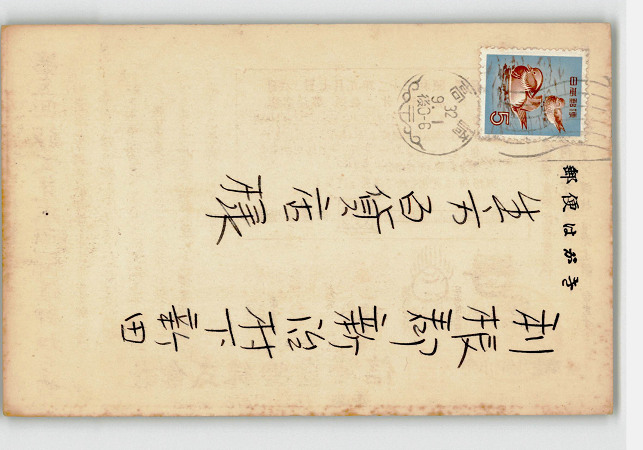 日本郵便
5
32
9.1
後0-6
郵便はがき
利根郡新治村下新田
生方百貨店様